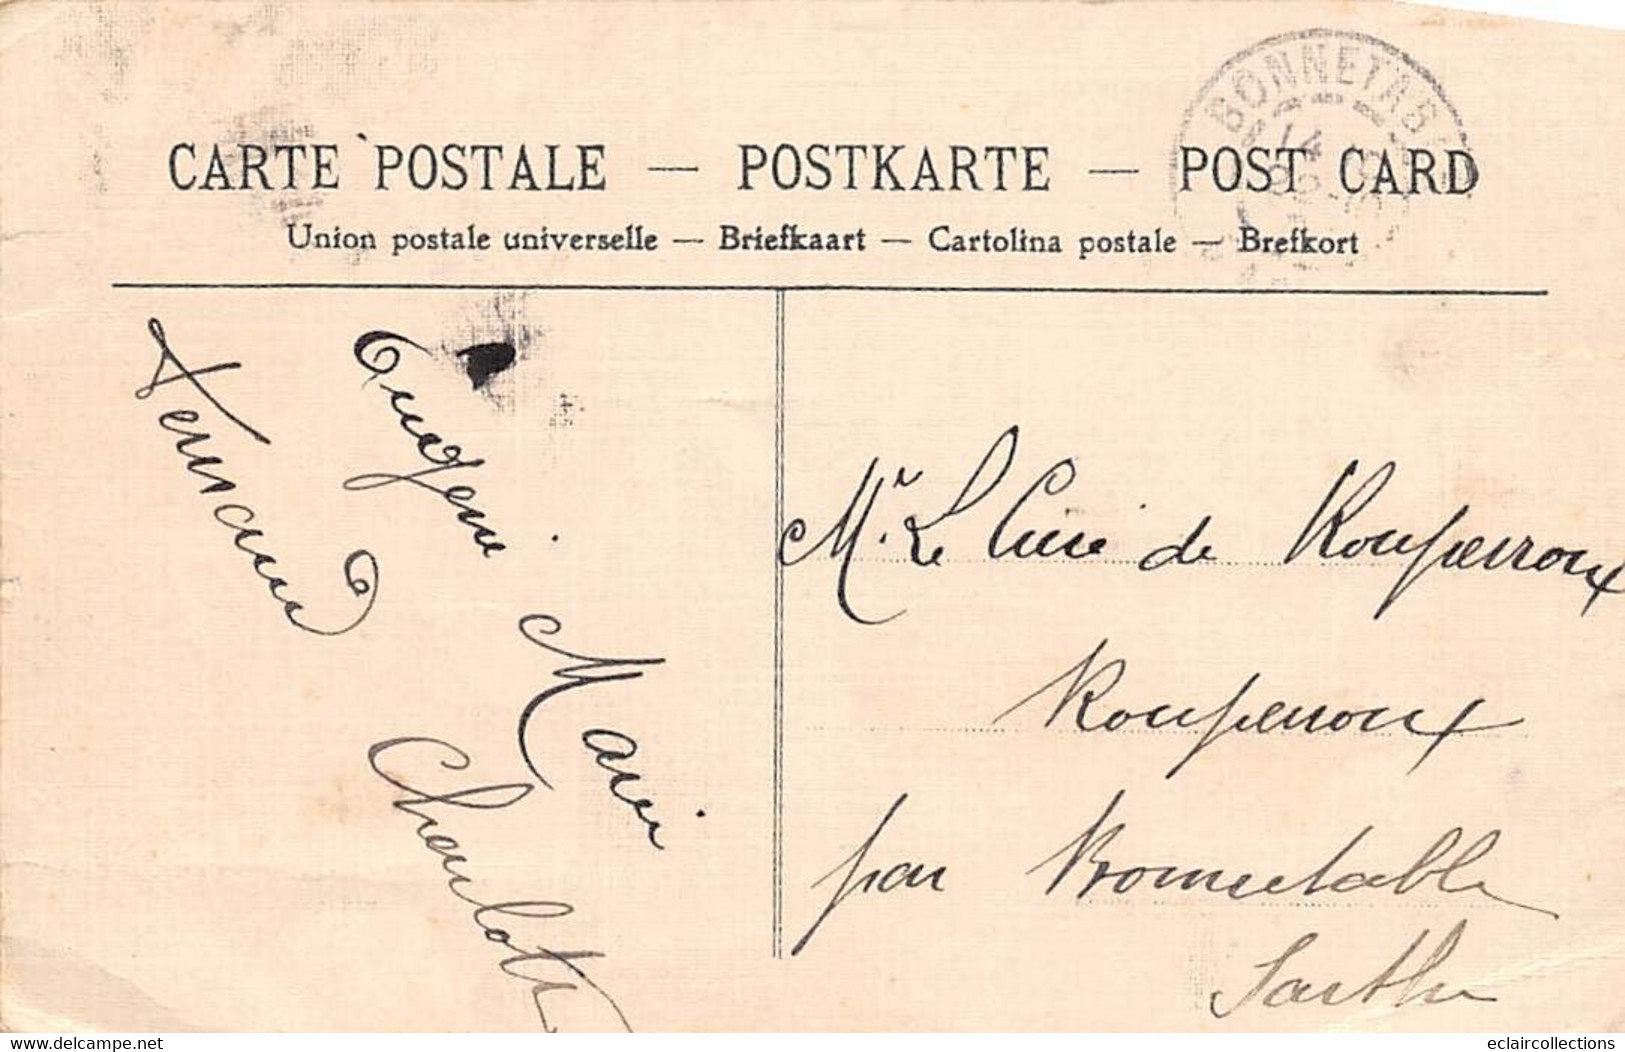 BONNETAB
14
CARTE POSTALE — POSTKARTE — POST CARD
Union postale universelle — Briefkaart — Cartolina postale — Brefkort
Fernand
Eugénie
Marie
Charlotte
Mr. Le Curé de Rouperroux
Rouperroux
par Bonnetable
Sarthe
www.delcampe.net
eclaircollections